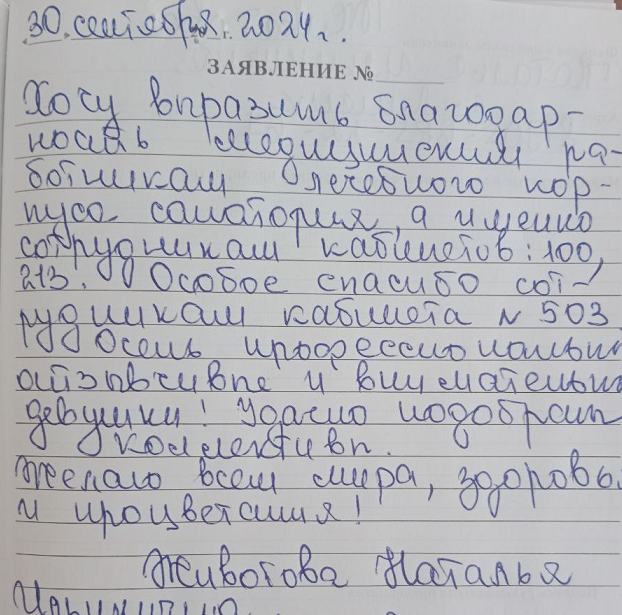 30 сентября г. 2024 г.
ЗАЯВЛЕНИЕ №
Хочу выразить благодар-
ность медицинским ра-
ботникам лечебного кор-
пуса санатория, а именно
сотрудникам кабинетов: 100,
213. Особое спасибо сот-
рудникам кабинета N 503
Очень профессиональны
отзывчивые и внимательны
девушки! Удачно подобран
коллективы.
Желаю всем мира, здоровь
и процветания!
Животова Наталья